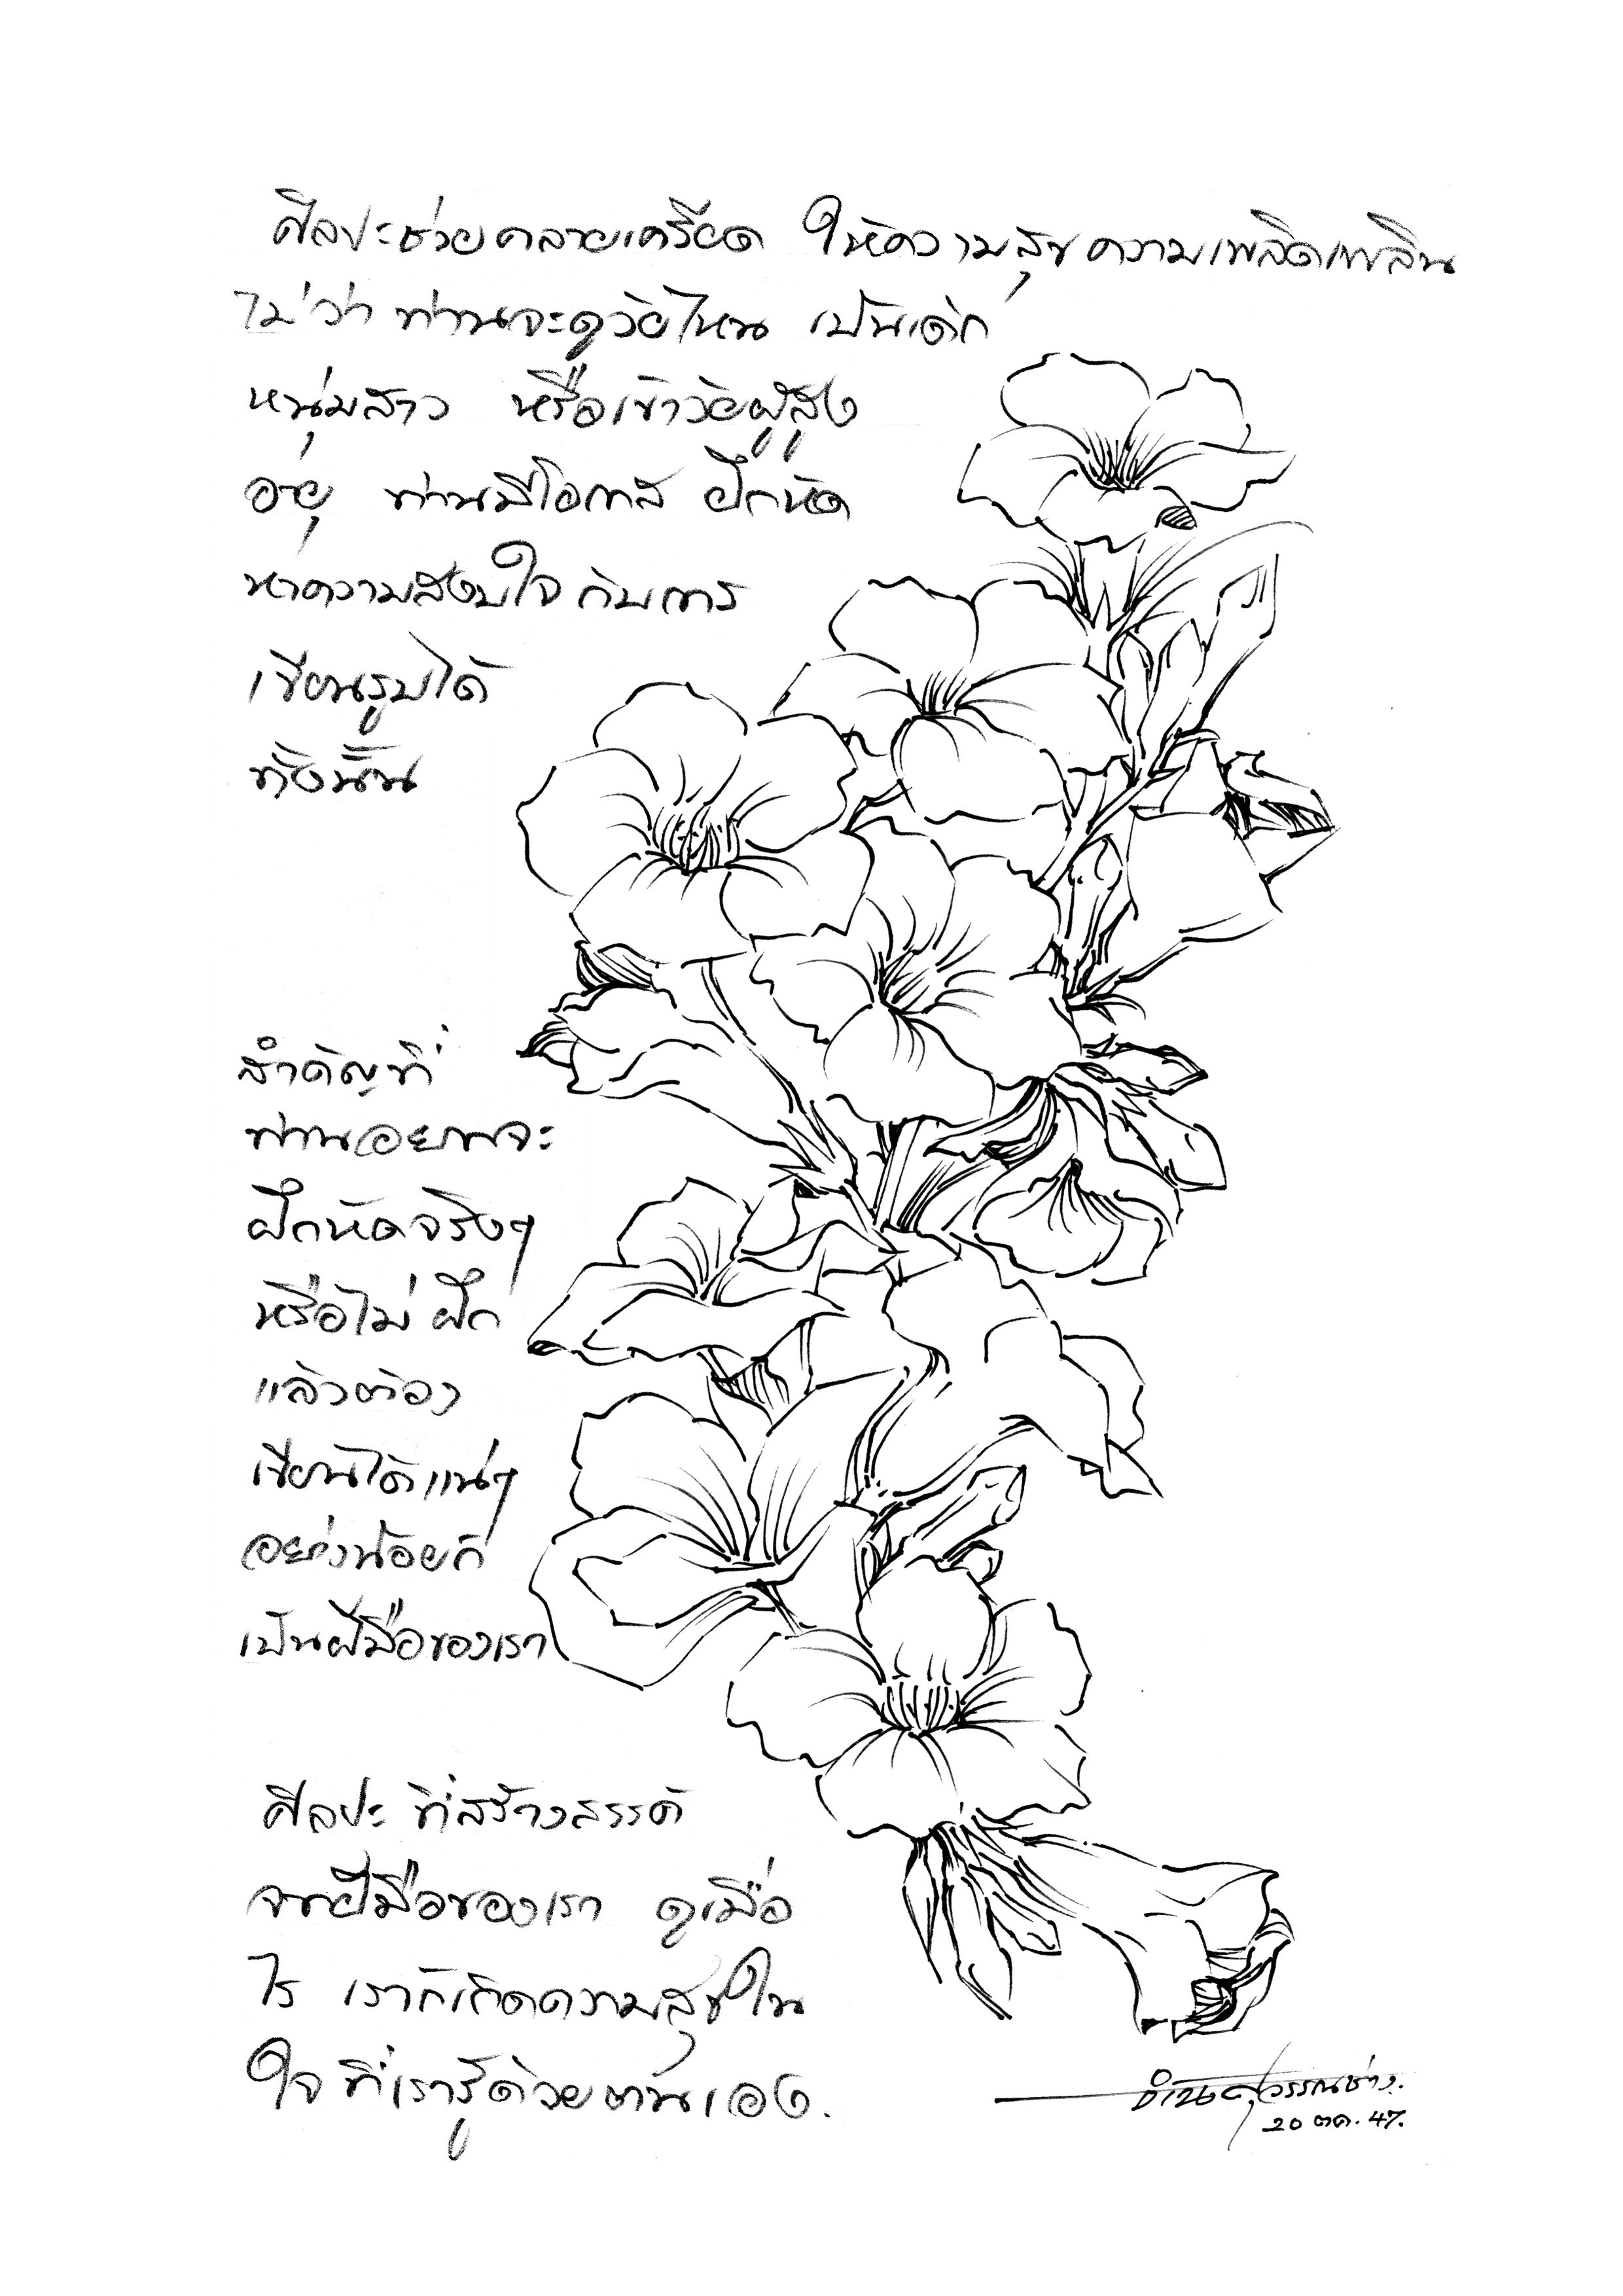 ศิลปะช่วยคลายเครียด ให้ความสุขความเพลิดเพลิน
ไม่ว่า ท่านจะดูวัยไหน เป็นเด็ก
หนุ่มสาว หรือเข้าวัยผู้สูง
อายุ ท่านมีโอกาส ฝึกหัด
หาความสงบใจ กับการ
เขียนรูปได้
ทั้งนั้น
สำคัญที่
ท่านอยากจะ
ฝึกหัดจริงๆ
หรือไม่ ฝึก
แล้วต้อง
เขียนได้แน่ๆ
อย่างน้อยก็
เป็นฝีมือของเรา
ศิลปะ ที่สร้างสรรค์
จากฝีมือของเรา ดูเมื่อ
ไร เราก็เกิดความสุขใน
ใจ ที่เรารู้ด้วยตนเอง.
สุวรรณช่าง.
20 ตค. 47.